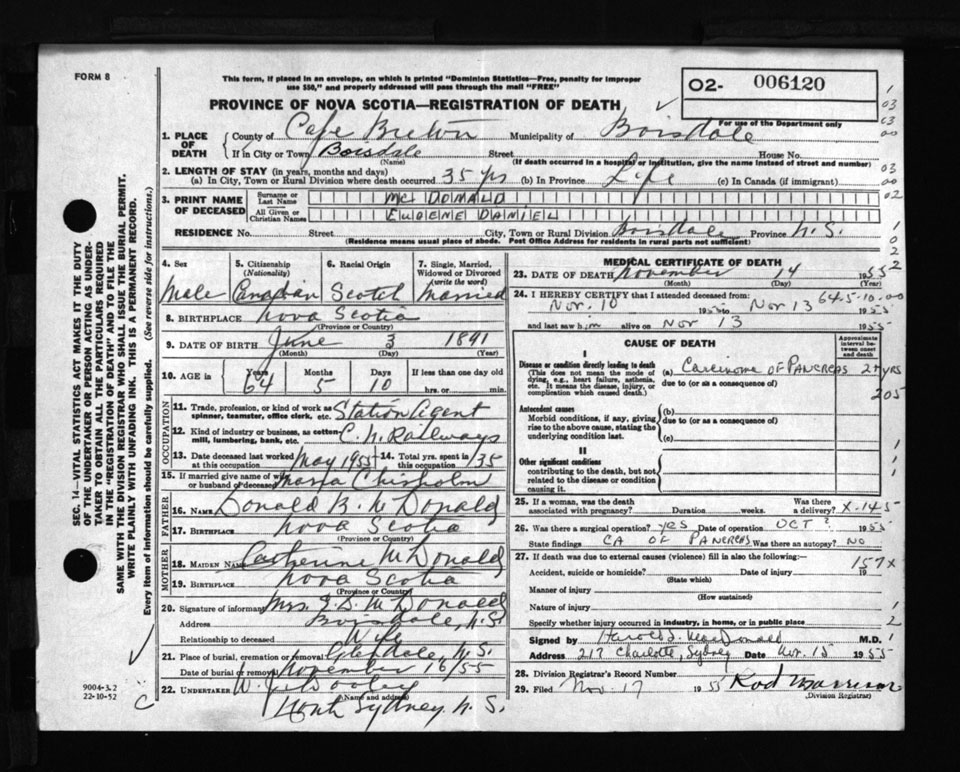 FORM 8
This form, if placed in an envelope, on which is printed "Dominion Statistics—Free, penalty for improper
use $50," and properly addressed will pass through the mail "FREE"
O2- 006120
For use of the Department only
PROVINCE OF NOVA SCOTIA—REGISTRATION OF DEATH
1. PLACE OF DEATH County of Cape Breton Municipality of Boisdale
If in City or Town Boisdale Street House No.
(Name) (If death occurred in a hospital or institution, give the name instead of street and number)
2. LENGTH OF STAY (in years, months and days)
(a) In City, Town or Rural Division where death occurred 35 yrs (b) In Province Life (c) In Canada (if immigrant)
3. PRINT NAME OF DECEASED Surname or Last Name McDONALD
All Given or Christian Names EUGENE DANIEL
RESIDENCE No. Street City, Town or Rural Division Boisdale Province N.S.
(Residence means usual place of abode. Post Office Address for residents in rural parts not sufficient)
4. Sex Male
5. Citizenship (Nationality) Canadian
6. Racial Origin Scotch
7. Single, Married, Widowed or Divorced (write the word) Married
8. BIRTHPLACE Nova Scotia
(Province or Country)
9. DATE OF BIRTH June 3 1891
(Month) (Day) (Year)
10. AGE in Years 64 Months 5 Days 10 If less than one day old
hrs. or min.
OCCUPATION
11. Trade, profession, or kind of work as spinner, teamster, office clerk, etc. Station Agent
12. Kind of industry or business, as cotten mill, lumbering, bank, etc. C. N. Railways
13. Date deceased last worked at this occupation May 1955 14. Total yrs. spent in this occupation 35
15. If married give name of wife or husband of deceased Chisholm
FATHER
16. NAME Donald B. McDonald
17. BIRTHPLACE Nova Scotia
(Province or Country)
MOTHER
18. MAIDEN NAME Catherine McDonald
19. BIRTHPLACE Nova Scotia
(Province or Country)
20. Signature of informant Mrs. E. D. McDonald
Address Boisdale, N.S.
Relationship to deceased Wife
21. Place of burial, cremation or removal Glendale, N.S.
Date of burial or removal November 16/55
22. UNDERTAKER W. J. Dooley
(Name and address)
North Sydney N.S.
MEDICAL CERTIFICATE OF DEATH
23. DATE OF DEATH November 14 1955
(Month) (Day) (Year)
24. I HEREBY CERTIFY that I attended deceased from:
64-5-10-00
Nov. 10 1955 to Nov 13 1955
and last saw him alive on Nov 13 1955
CAUSE OF DEATH
Approximate interval between onset and death
I
Disease or condition directly leading to death
(This does not mean the mode of dying, e.g., heart failure, asthenia, etc. It means the disease, injury, or complication which caused death.)
(a) Carcinoma OF PANCREAS 2 yrs
due to (or as a consequence of)
205
Antecedent causes
Morbid conditions, if any, giving rise to the above cause, stating the underlying condition last.
(b)
due to (or as a consequence of)
(c)
II
Other significant conditions
contributing to the death, but not related to the disease or condition causing it.
25. If a woman, was the death associated with pregnancy? Duration weeks. Was there a delivery? X-145
26. Was there a surgical operation? yes Date of operation OCT ? 1955
State findings CA OF PANCREAS Was there an autopsy? NO
27. If death was due to external causes (violence) fill in also the following:—
157X
Accident, suicide or homicide? Date of injury 19
(State which)
Manner of injury
(How sustained)
Nature of injury
Specify whether injury occurred in industry, in home, or in public place
Signed by Harold J. MacDonald M.D.
Address 217 Charlotte, Sydney Date Nov. 15 1955
28. Division Registrar's Record Number
29. Filed Nov. 17 1955 Rod Morrison
(Division Registrar)
SEC. 14—VITAL STATISTICS ACT MAKES IT THE DUTY
OF THE UNDERTAKER OR PERSON ACTING AS UNDER-
TAKER TO OBTAIN ALL THE PARTICULARS REQUIRED
IN THE "REGISTRATION OF DEATH" AND TO FILE THE
SAME WITH THE DIVISION REGISTRAR WHO SHALL ISSUE THE BURIAL PERMIT.
WRITE PLAINLY WITH UNFADING INK. THIS IS A PERMANENT RECORD.
Every item of information should be carefully supplied. (See reverse side for instructions.)
9004-3.2
22-10-52
C